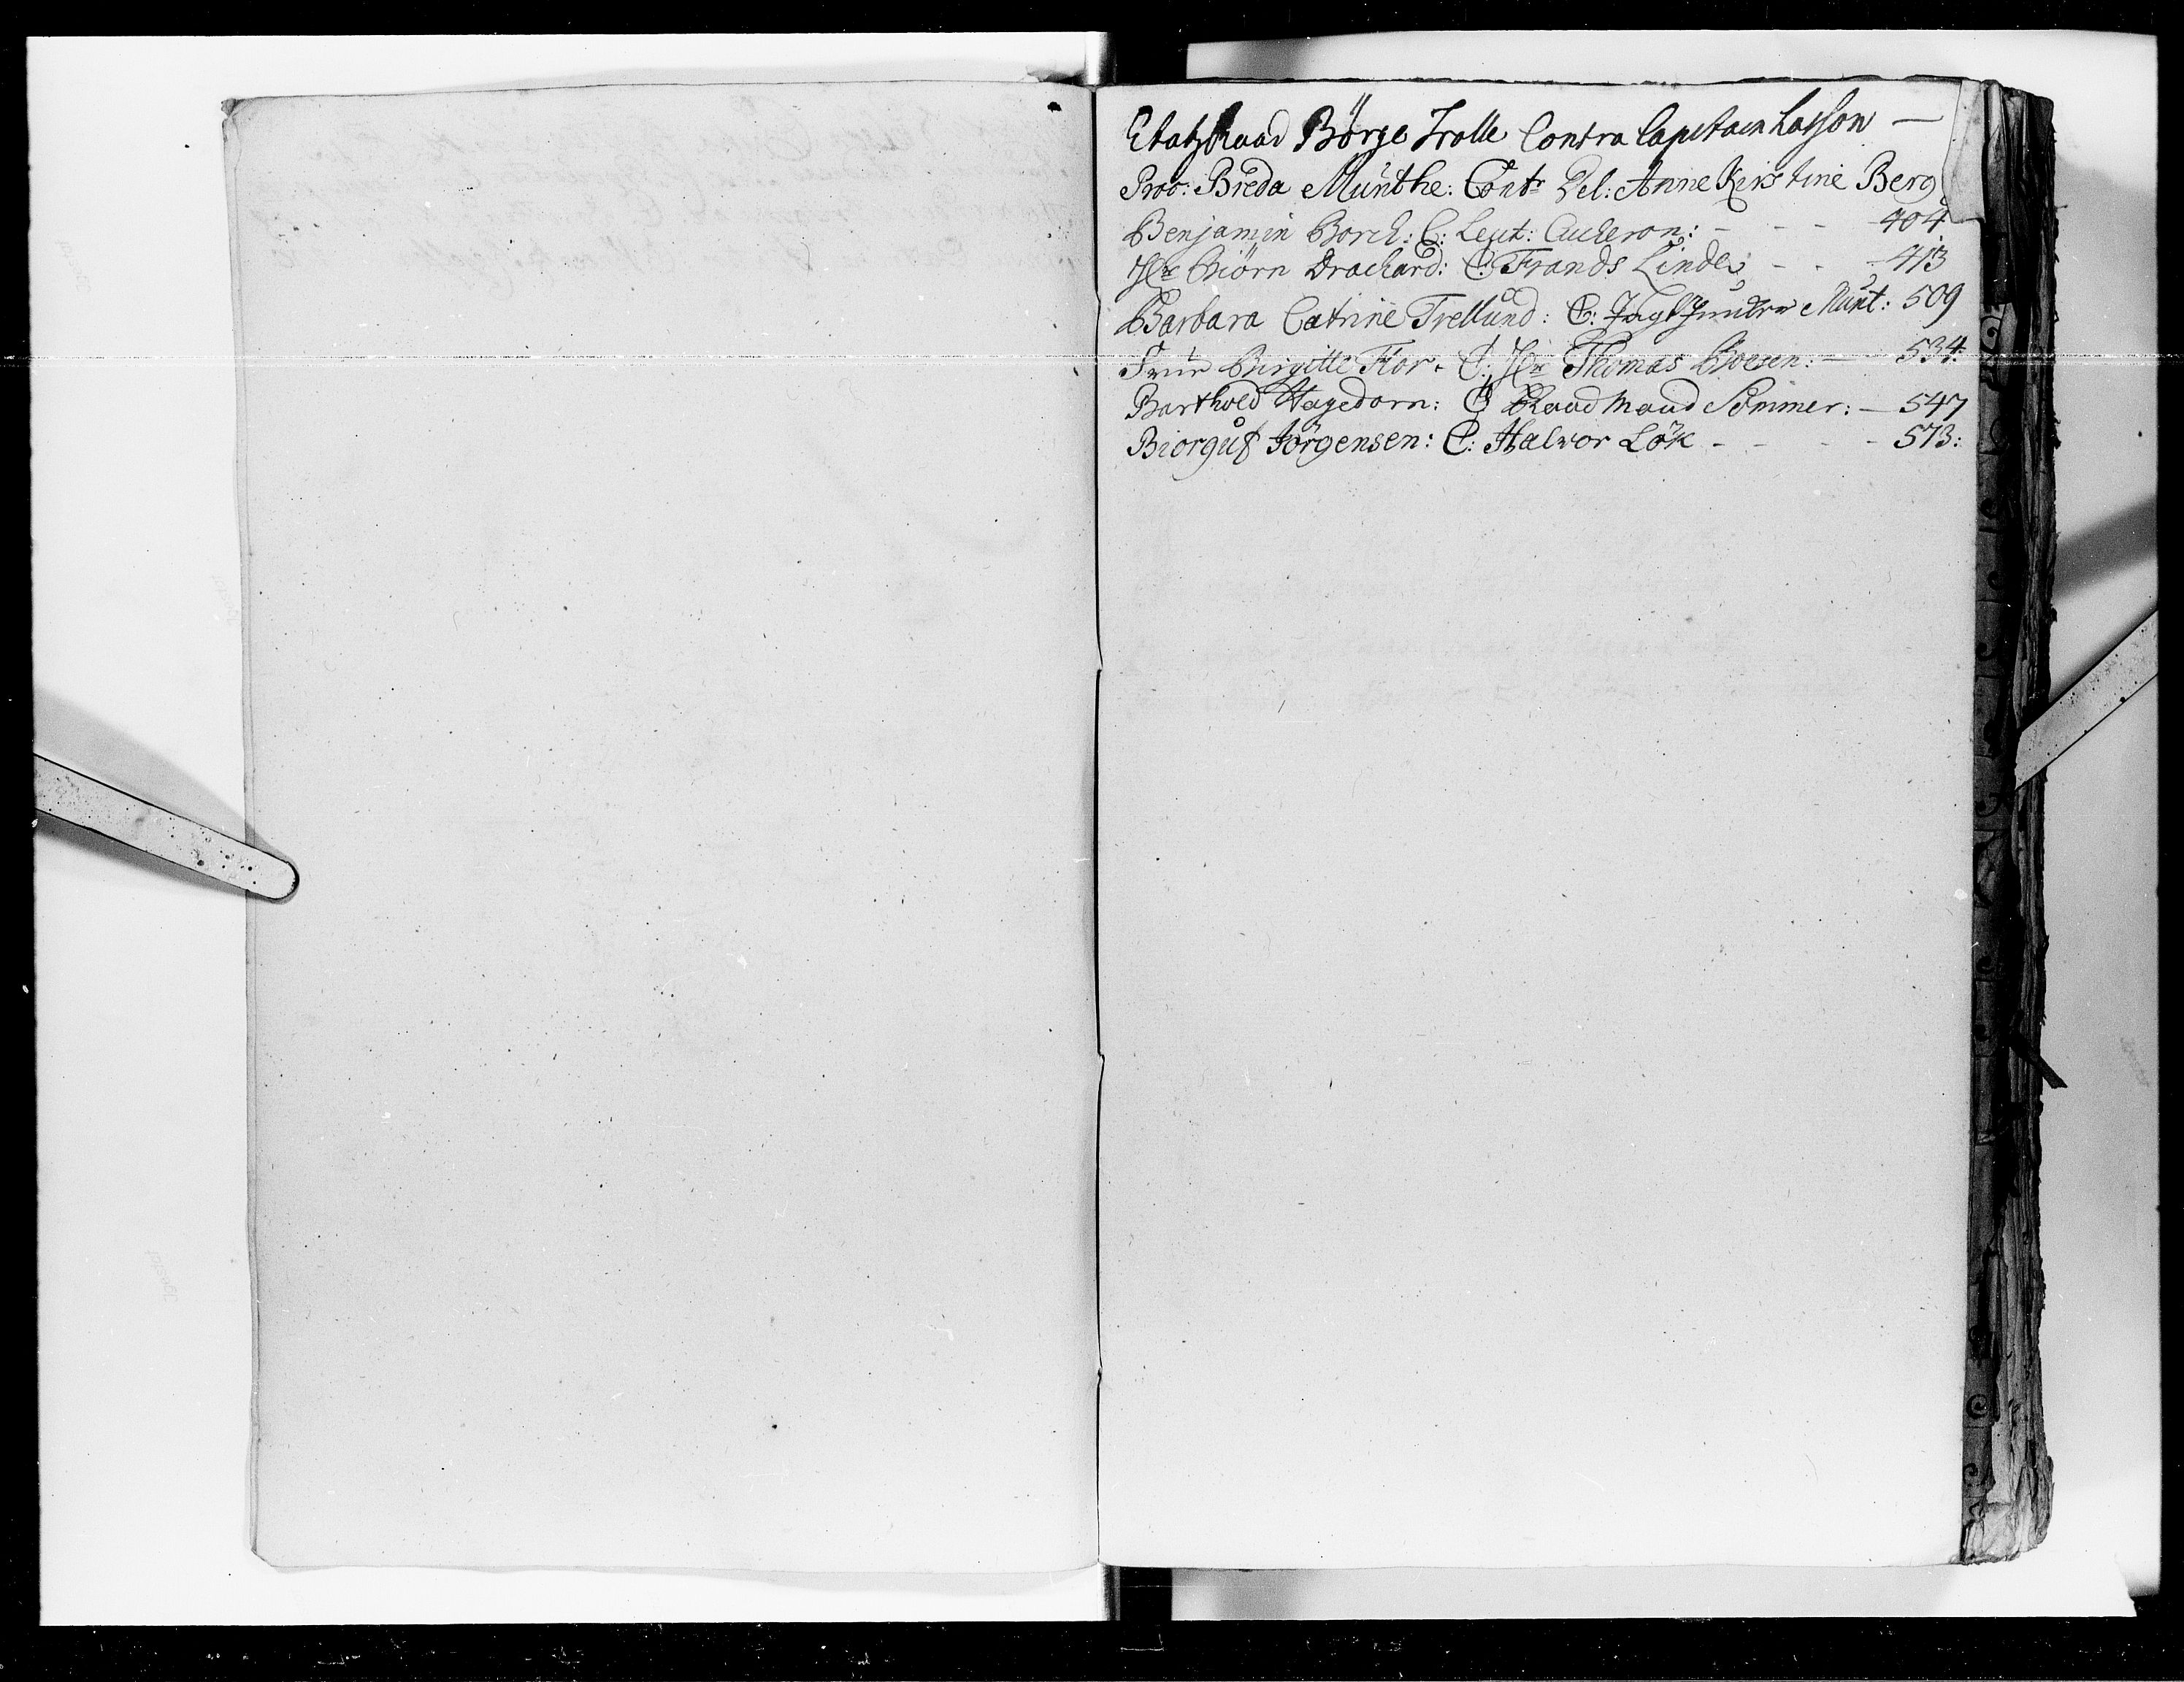 EtatzRaad Börge Trolle Contra Capitain Lasson —
Prov: Breda Munthe: Contr Del: Anne Kirstine Berg
Benjamin Borch: C: Leut: - - - 404
Hr Biörn Drachard: C: Frands Linde - - - 413
Barbara Catrine Trellund: C: Munt: 509
Frue Birgitte Flor. C: Hr Thomas — 534:
Barthold Hagedorn: C Raadmand Sommer: — 547
Biorguf Jörgensen: C: Halvor Lök - - - - 573: